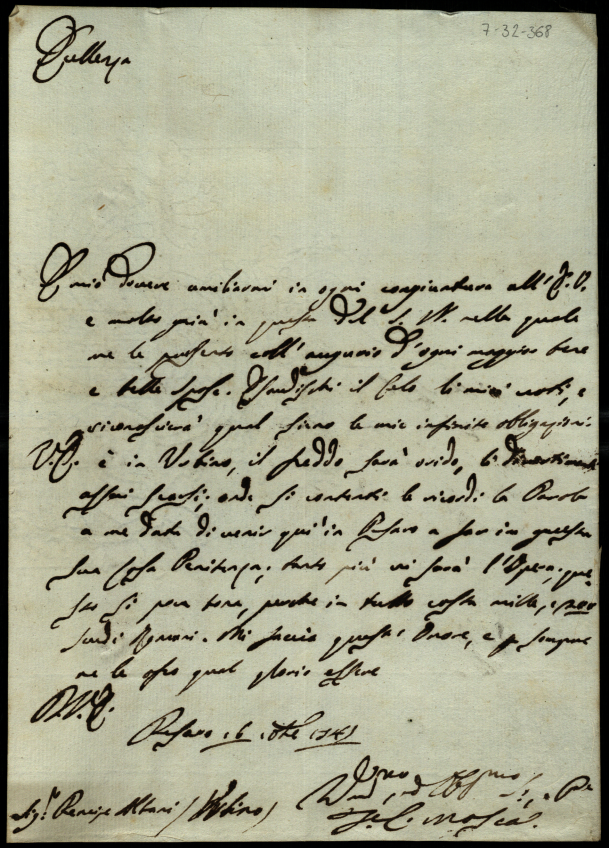 7-32-368
Eccellenza
È mio dovere umiliarmi in ogni congiuntura all' E. V.
e molto più in questa del S. N. nella quale
me le presento coll' augurio d' ogni maggior bene
e belle spose. Esaudischi il Cielo li miei voti, e
riconoscierà quali siano le mie infinite obligazioni.
V. E. è in Urbino, il freddo sarà orido, li divertimenti
assai scarsi; onde si contenti le ricordi la Parola
a me data di venir quì in Pesaro a far in questa
sua Casa Penitenza; tanto più vi sarà l' Opera,
perche in tutto costa mille, e
scudi Romani. Mi faccia questo Onore, e sempre
me le qual glorio essere
D. V. E.
Pesaro 16
Sig.r Principe Albani / Urbino /
Mosca